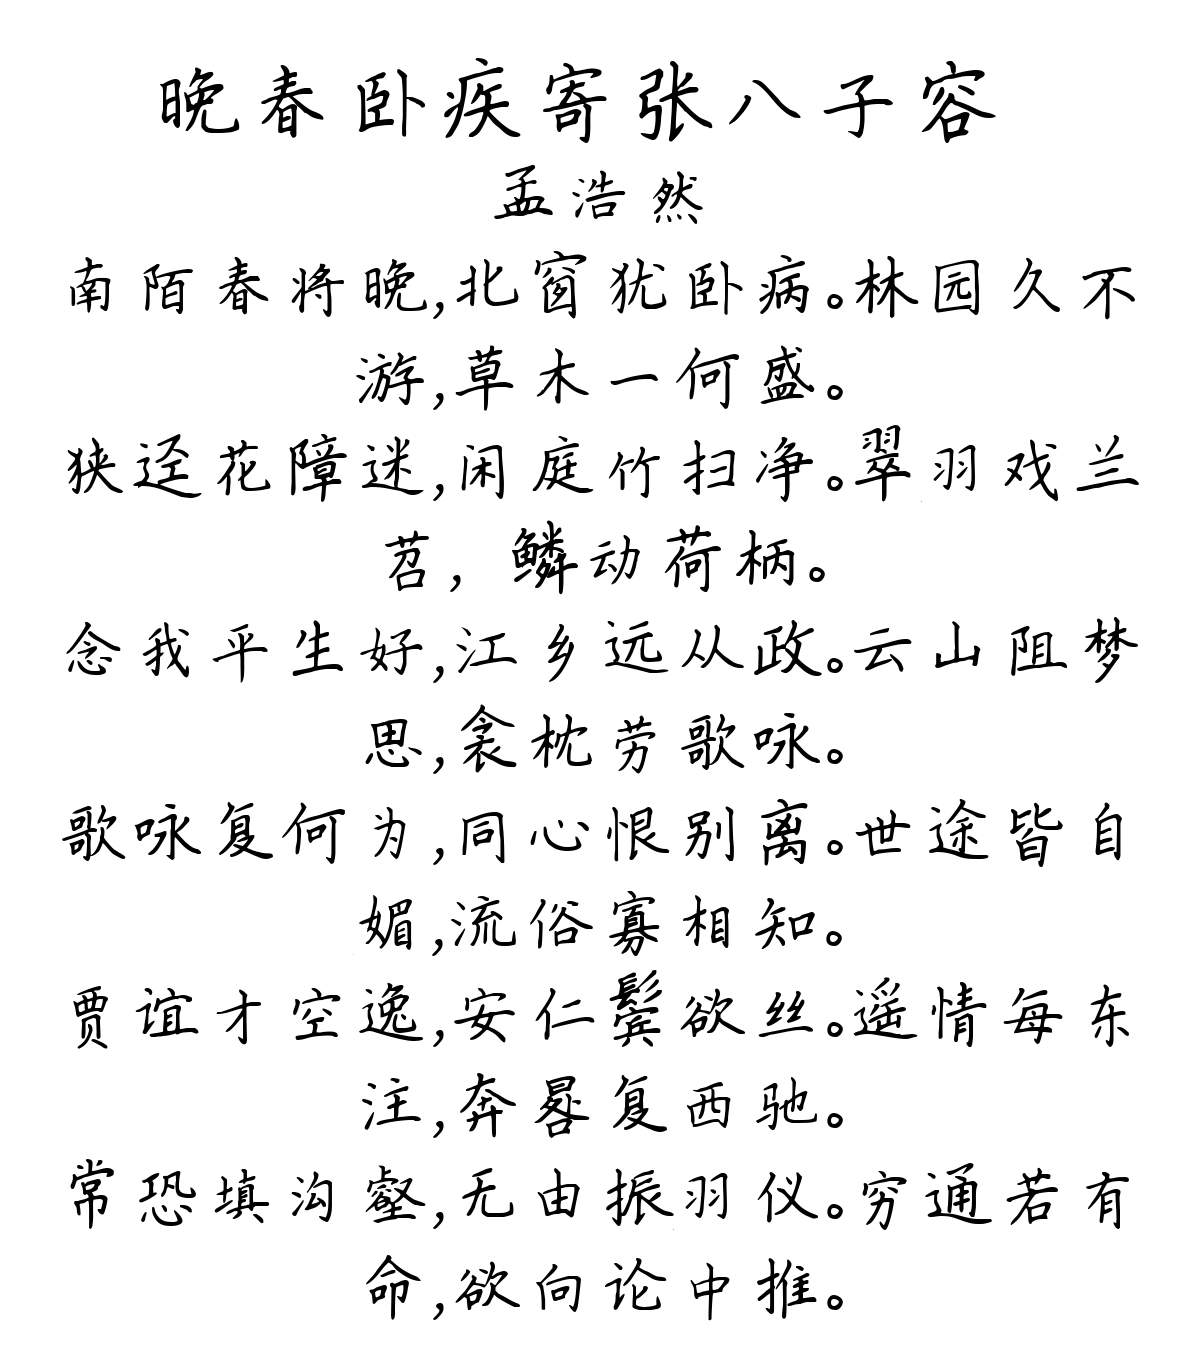 晚春卧疾寄张八子容
孟浩然
南陌春将晚,北窗犹卧病。林园久不
游,草木一何盛。
狭迳花障迷,闲庭竹扫净。翠羽戏兰
苕,鳞动荷柄。
念我平生好,江乡远从政。云山阻梦
思,衾枕劳歌咏。
歌咏复何为,同心恨别离。世途皆自
媚,流俗寡相知。
贾谊才空逸,安仁鬓欲丝。遥情每东
注,奔晷复西驰。
常恐填沟壑,无由振羽仪。穷通若有
命,欲向论中推。